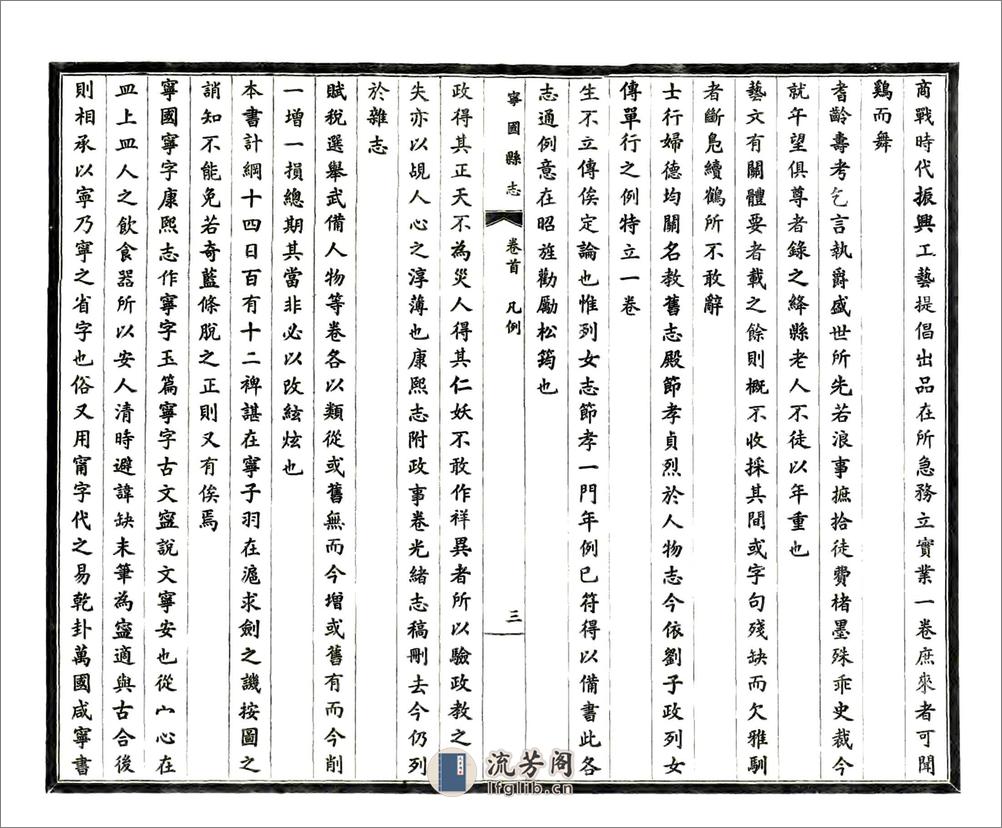 商戰時代振興工藝提倡出品在所急務立實業一卷庶來者可聞
鷄而舞
耆齡壽考乞言執爵盛世所先若浪事摭拾徒費楮墨殊乖史裁今
就年望俱尊者錄之絳縣老人不徒以年重也
藝文有關體要者載之餘則概不收採其間或字句殘缺而欠雅馴
者斷鳧續鶴所不敢辭
士行婦德均關名教舊志殿節孝貞烈於人物志今依劉子政列女
傳單行之例特立一卷
生不立傳俟定論也惟列女志節孝一門年例已符得以備書此各
志通例意在昭旌勸勵松筠也
寧國縣志 卷首 凡例 三
政得其正天不為災人得其仁妖不敢作祥異者所以驗政教之
失亦以覘人心之淳薄也康熙志附政事卷光緒志稿刪去今仍列
於雜志
賦稅選舉武備人物等卷各以類從或舊無而今增或舊有而今削
一增一損總期其當非必以改絃炫也
本書計綱十四目百有十二裨諶在寧子羽在滬求劍之譏按圖之
誚知不能免若奇藍條脫之正則又有俟焉
寧國寧字康熙志作寧字玉篇寧字古文寍說文寧安也從宀心在
皿上皿人之飲食器所以安人清時避諱缺末筆為寍適與古合後
則相承以寧乃寧之省字也俗又用甯字代之易乾卦萬國咸寧書
流芳阁
lfglib.cn